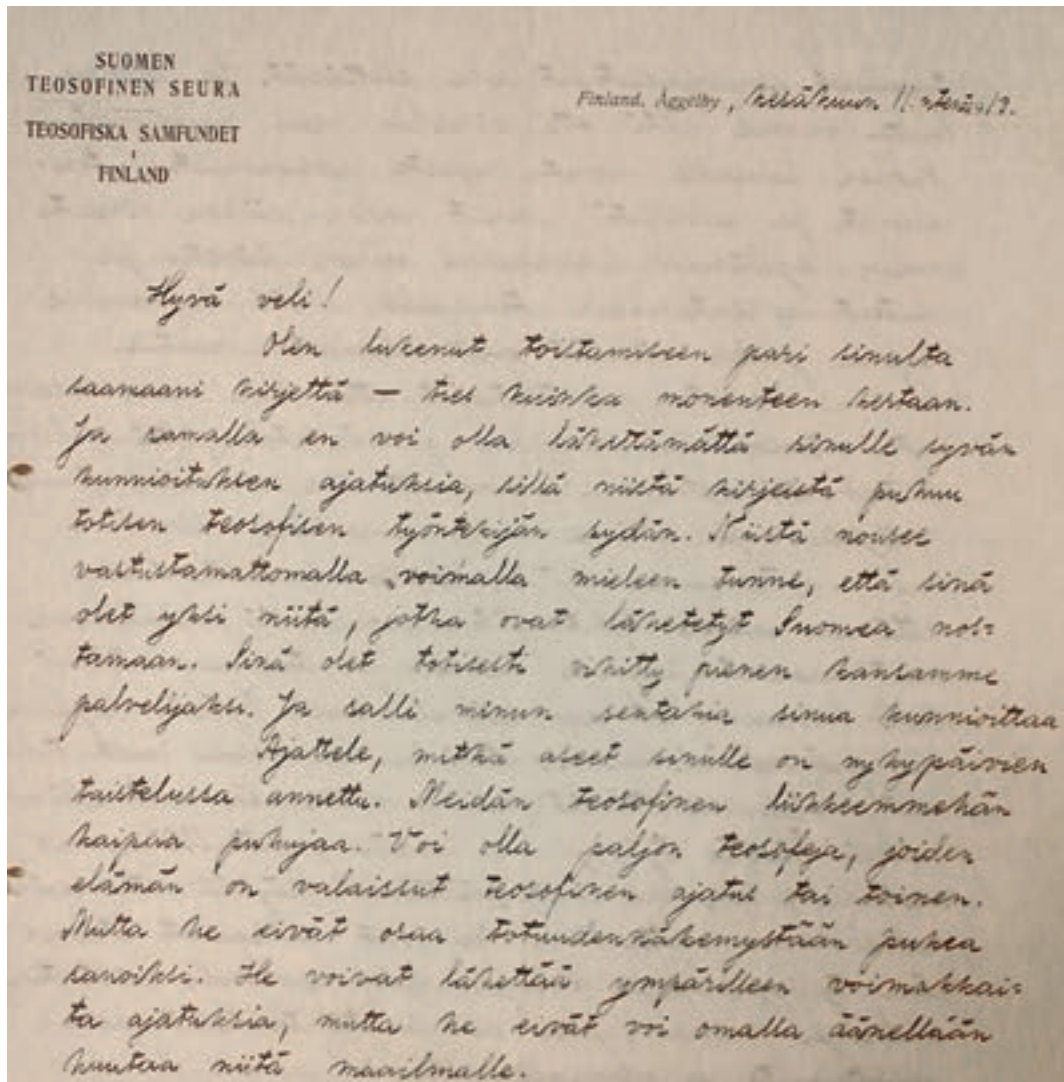 SUOMEN
TEOSOFINEN SEURA
TEOSOFISKA SAMFUNDET
I
FINLAND
Finland, Åggelby, kesäkuun 11. 1919.
Hyvä veli!
Olen lukenut toistamiseen pari sinulta
saamaani kirjettä — ties kuinka monenteen kertaan.
Ja samalla en voi olla lähettämättä sinulle syvän
kunnioituksen ajatuksia, sillä niistä kirjeistä puhuu
totisen teosofisen työntekijän sydän. Niistä nousee
vastustamattomalla voimalla mieleen tunne, että sinä
olet yksi niitä, jotka ovat lähetetyt Suomea nos=
tamaan. Sinä olet totisesti vihitty pienen kansamme
palvelijaksi. Ja salli minun sentähden sinua kunnioittaa
Ajattele, mitkä aseet sinulle on nykypäivien
taistelussa annettu. Meidän teosofinen liikkeemmehän
kaipaa puhujaa. Voi olla paljon teosofeja, joiden
elämän on valaissut teosofinen ajatus tai toinen.
Mutta he eivät osaa totuudennäkemystään pukea
sanoiksi. He voivat lähettää ympärilleen voimakkai=
ta ajatuksia, mutta he eivät voi omalla äänellään
huutaa niitä maailmalle.